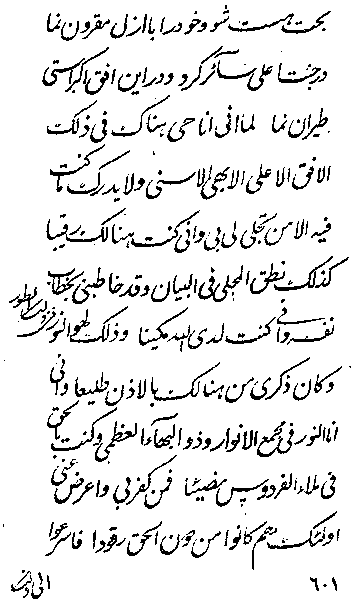 بحت هست شو و خود را با ازل مقرون نما
در جنت اعلی سائر گرد و در این افق اکبر اسنی
طیران نما لما انی انا حی هناک فی ذلک
الافق الاعلی الابهی الاسنی ولا یدرک ما کنت
فیه الا من تجلی لی بی وانی کنت هنالک رقیبا
کذلک نطق المجلی فی البیان وقد خاطبنی بخطاب
نفسه وانی کنت لدی الله مکینا وذلک لهو النور
وکان ذکری من هنالک بالاذن طلیعا وانی
انا النور فی مجمع الانوار وذو البهاء العظمی وکنت بالحق
فی ملاء الفردوس مضیئا فمن کفر بی واعرض عنی
اولئک هم کانوا من دون الحق رقودا فاسرعوا
٦٠١